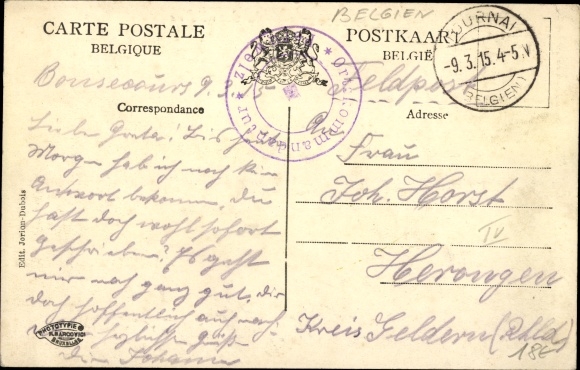 BELGIEN
CARTE POSTALE
BELGIQUE
POSTKAART
BELGIË
TOURNAI
-9.3.15.4-5.N
(BELGIEN)
Bonsecours 9.3.
Feldpost
Correspondance
Adresse
Ortskommandantur
Liebe Greta! Bis heute
Morgen hab ich noch kein
Antwort bekommen, Du
hast doch wohl sofort
geschrieben? Es geht
mir noch ganz gut, dir
doch hoffentlich auch noch
herzlichen Gruß
Dein Johann
An
Frau
Joh. Horst
IV
Herongen
Kreis Geldern (Rhld)
18E
Edit. Jorion-Dubois
PHOTOTYPIE
MARCOVICI
BRUXELLES